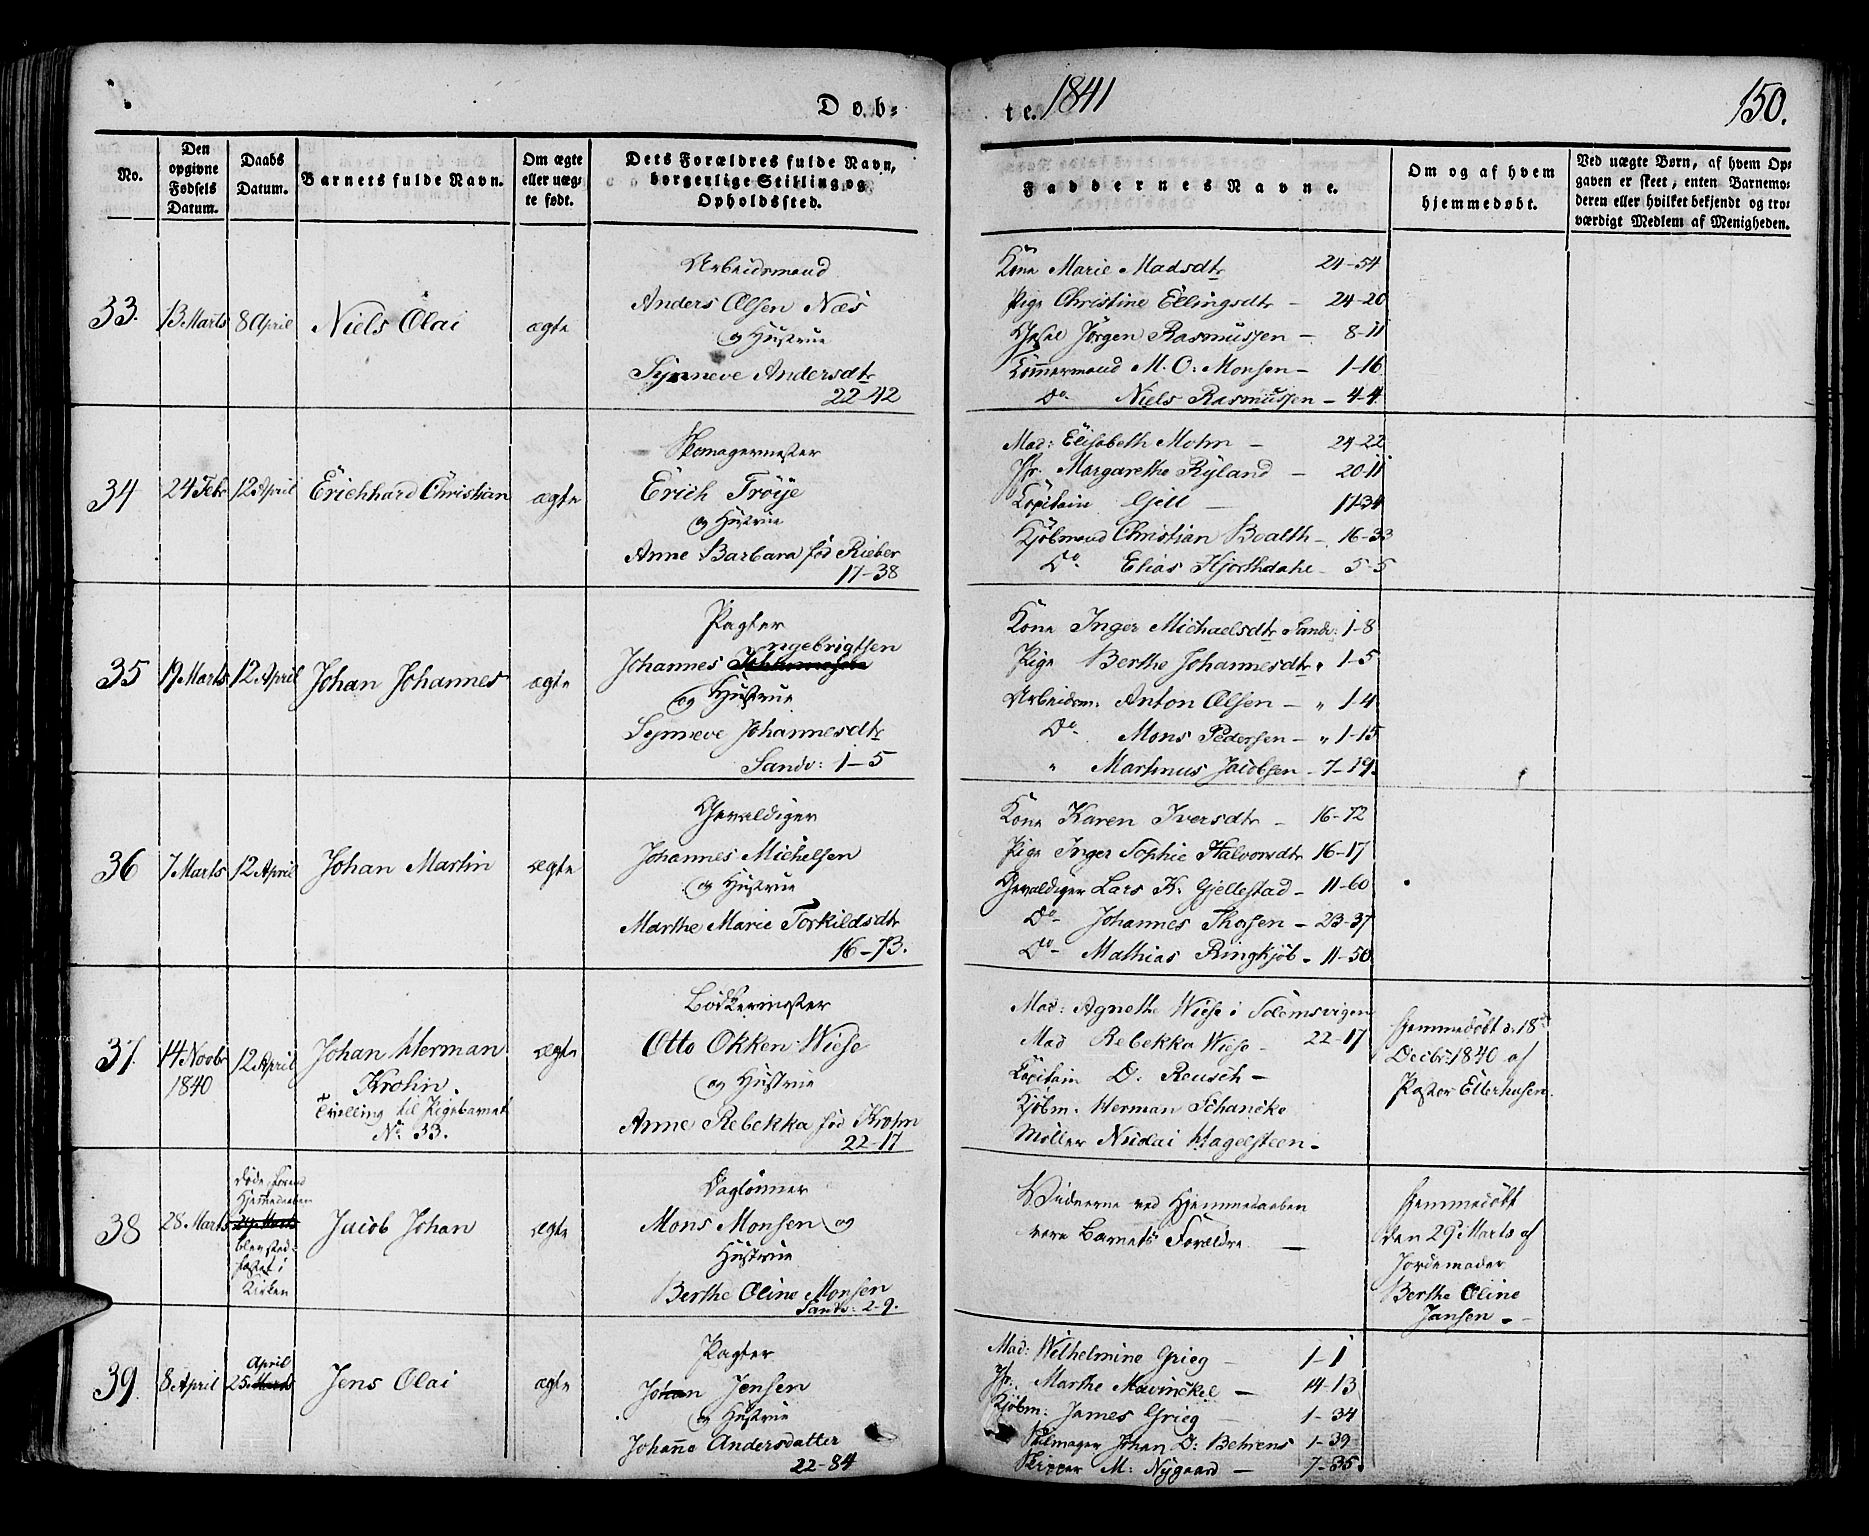 Døb-
te. 1841
150.
No.
Den opgivne Fødsels Datum.
Daabs Datum.
Barnets fulde Navn.
Om ægte eller uægte født.
Dets Forældres fulde Navn, borgerlige Stilling og Opholdssted.
Faddernes Navne.
Om og af hvem hjemmedøbt.
Ved uægte Børn, af hvem Opgaven er skeet; enten Barnemoderen eller hvilket bekjendt og troværdigt Medlem af Menigheden.
33.
13 Marts
8 April
Niels Olai
ægte
Arbeidsmand
Anders Olsen Næs
og Hustrue
Synneve Andersdtr
22-42
Kone Marie Madsdtr 24-54
Pige Christine Ellingsdtr - 24-20
Jørgen Rasmussen - 8-11
Tømmermand M. O. Monsen - 1-16
Do Niels Rasmussen - 4-4.
34
24 Febr
12 April
Erichhard Christian
ægte
Skomagermester
Erich Trøye
og Hustrue
Anne Barbara fød Rieber
17-38
Mad: Elisabeth Mohn - 24-22
Jfr. Margarethe Ryland - 20-11
Kapitain Gjell - 17-34
Kjøbmand Christian Boalth - 16-33
Do. Elias Hjorthdahl - 5-5
35
19 Marts
12 April
Johan Johannes
ægte
Pagter
Johannes Ingebrigtsen
og Hustrue
Synneve Johannesdtr
Sandv: 1-5
Kone Inger Michaelsdtr Sandv: 1-8
Pige Berthe Johannesdtr " 1-5
Arbeidsm. Anton Olsen - " 1-4
Do. Mons Pedersen - " 1-15
" Martinus Jacobsen - 7-19.
36
7 Marts
12 April
Johan Martin
ægte
Gevaldiger
Johannes Michelsen
og Hustrue
Marthe Marie Torkildsdtr
16-73.
Kone Karen Iversdtr - 16-72
Pige Inger Sophie Halvorsdtr 16-17
Gevaldiger Lars K. Gjellestad - 11-60
Do - Johannes Thorsen - 23-37
Do - Mathias Ringkjøb - 11-50
37.
14 Novbr 1840
12 April
Johan Herman
Krohn.
Tvilling til Pigebarnet
No 33.
ægte
Bødkermester
Otto Okken Wiese
og Hustrue
Anne Rebekka fød Krohn
22-17
Mad: Agnethe Wiese i Solemsvigen
Mad Rebekka Wiese - 22-17
Kapitain D. Reusch -
Kjøbm. Herman Schancke
Møller Nicolai Hagelsteen -
Hjemmedøbt d. 18de
Decbr: 1840 af
Pastor Ellerhusen.
38
28 Marts
døde forend
Hjemmedaaben
29 Marts
blev stad-
fæstet i
Kirken
Jacob Johan
ægte
Daglønner
Mons Monsen og
Hustrue
Berthe Oline Monsen
Sandv: 2-9.
Vidnerne ved Hjemmedaaben
vare Barnets Forældre -
Hjemmedøbt
den 29 Marts af
Jordemoder
Berthe Oline
Jansen -
39.
8 April
April
25 Marts
Jens Olai
ægte
Pagter
Johan Jensen
og Hustrue
Johanne Andersdatter
22-84
Mad: Wilhelmine Grieg - 1-1
Jfr: Marthe Mowinckel - 14-13
Kjøbm: James Grieg - 1-34
Johan D: Behrens 1-39
Skipper M: Nygaard - 7-35.